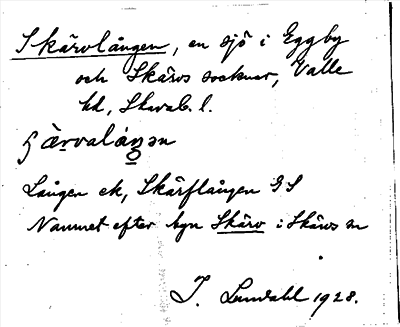 Skärvlången, en sjö i Eggby
och Skärvs socknar, Valle
hd, Skarab. l.
ʃ ärvalåŋən
Lången ek, Skärflången GS
Namnet efter byn Skärv i Skärvs sn
J. Lundahl 1928.